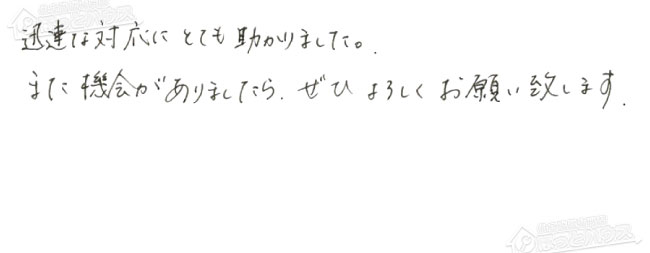 迅速な対応にとても助かりました。
また機会がありましたら、ぜひよろしくお願い致します。